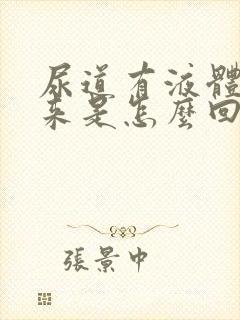 尿道有液體
來是怎麼回
張景中